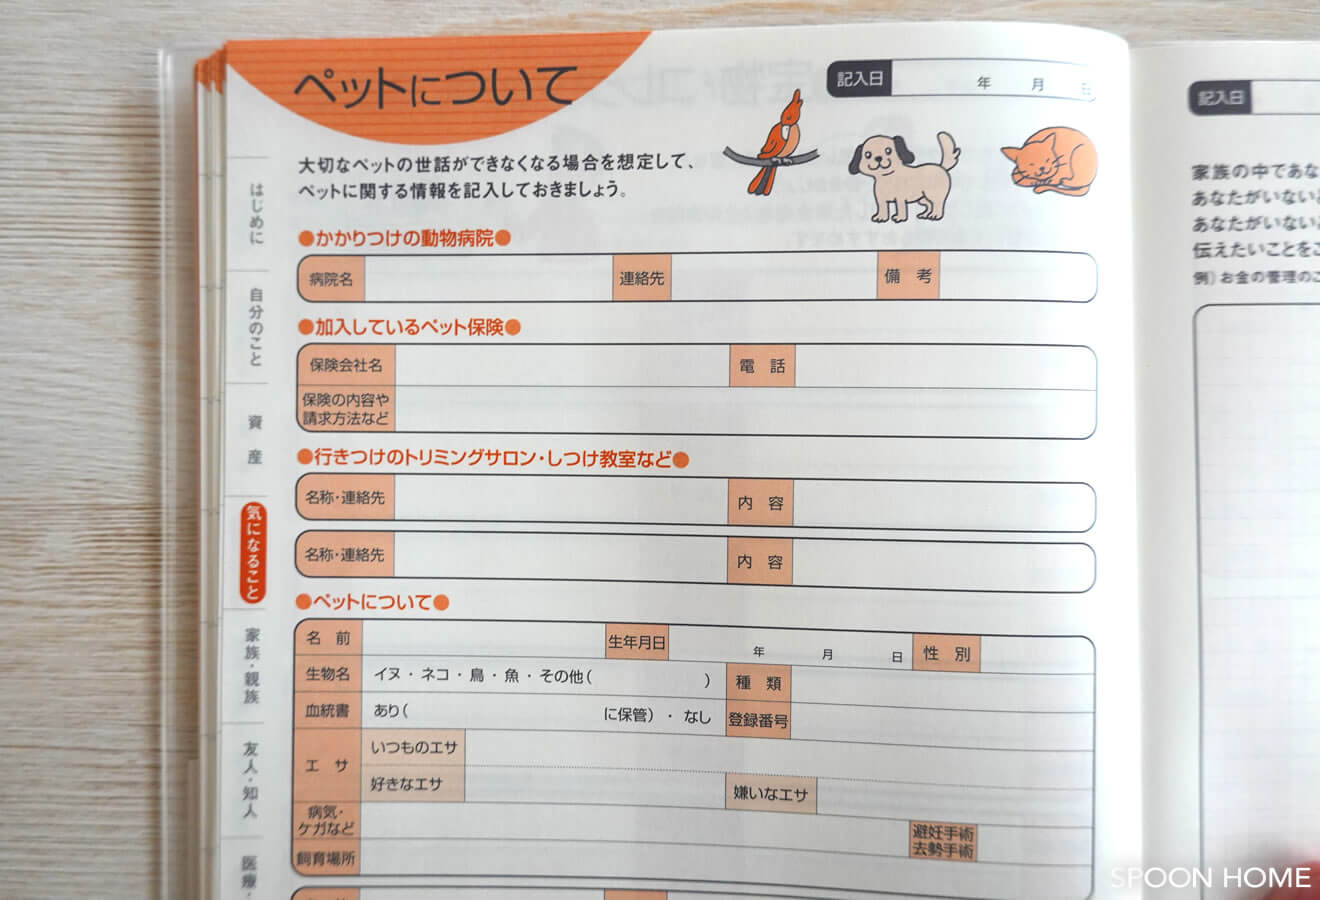 ペットについて
記入日 年 月 日
大切なペットの世話ができなくなる場合を想定して、
ペットに関する情報を記入しておきましょう。
●かかりつけの動物病院●
病院名 連絡先 備考
●加入しているペット保険●
保険会社名 電話
保険の内容や
請求方法など
●行きつけのトリミングサロン・しつけ教室など●
名称・連絡先 内容
名称・連絡先 内容
●ペットについて●
名前 生年月日 年 月 日 性別
生物名 イヌ・ネコ・鳥・魚・その他( ) 種類
血統書 あり( に保管)・なし 登録番号
エサ
いつものエサ
好きなエサ 嫌いなエサ
病気・
ケガなど
避妊手術
去勢手術
飼育場所
はじめに
自分のこと
資産
気になること
家族・親族
友人・知人
医療・
記入日
家族の中であな
あなたがいないと
あなたがいないと
伝えたいことをこ
例)お金の管理のこ
SPOON HOME